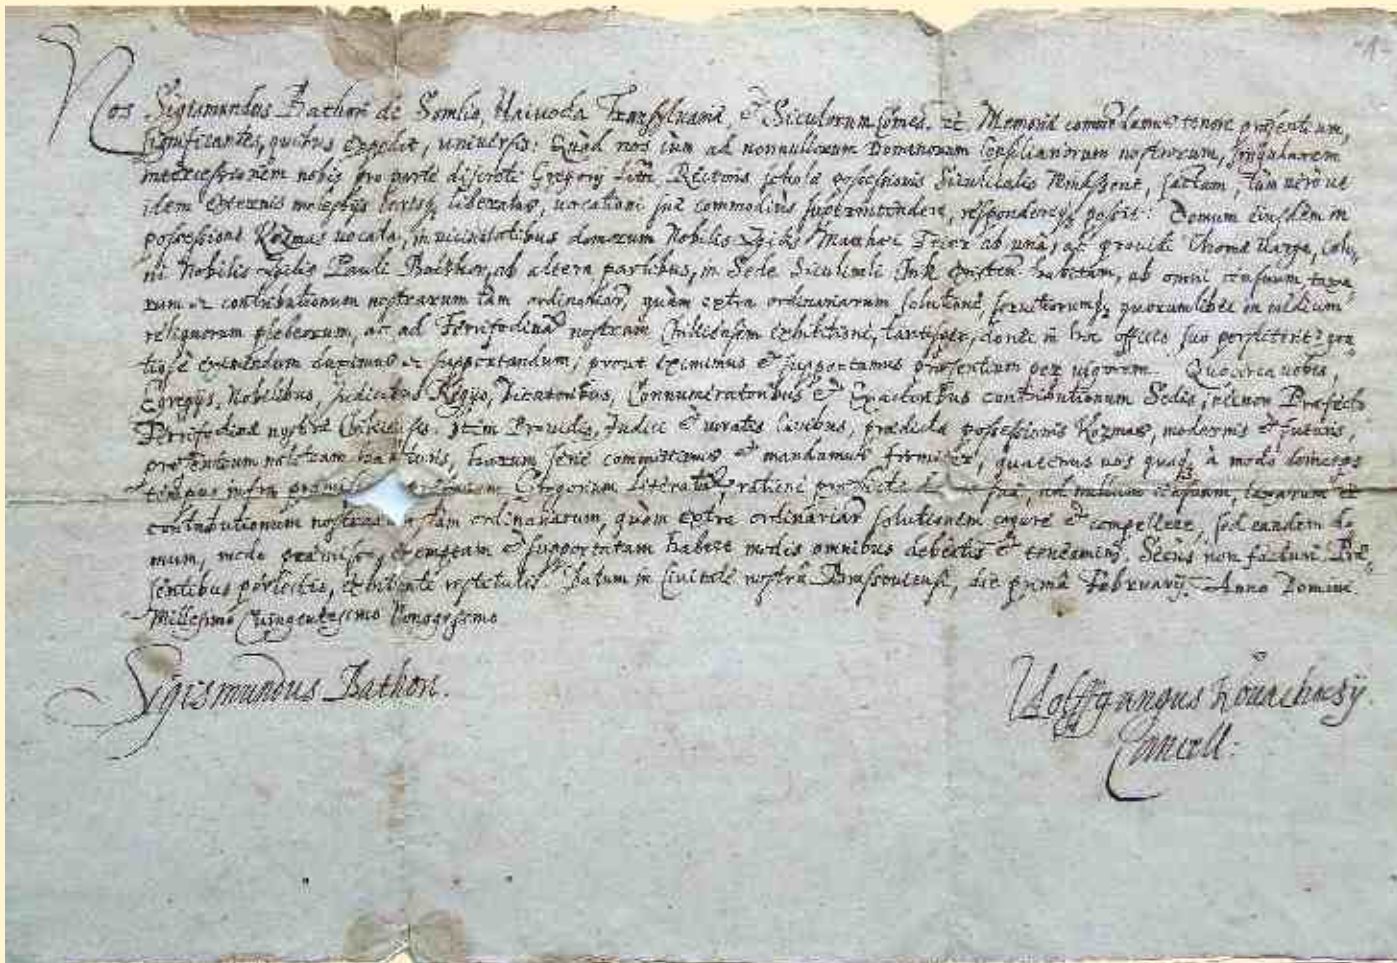 Nos Sigismundus Bathori de Somlio, Vaivoda Transsylvaniæ, et Siculorum Comes. etc. Memoriæ commendamus tenore præsentium,
significantes, quibus expedit, universis: Quòd nos cùm ad nonnullorum Dominorum Consiliariorum nostrorum, singularem
intercessionem nobis pro parte discreti Gregorij Lit. Rectoris scholæ possessionis Siculicalis factam, tùm verò ut
idem externis molestijs liberatus, vocationi suæ commodiùs superintendere, respondereq3 possit: Domum eiusdem in
possessione Kozmas vocata, in vicinitatibus domorum Nobilis ab unâ, ac providi Thomæ Varga, Colo,
ni Nobilis Pauli ab altera partibus, in Sede Siculicali Csik existen. habitam, ab omni censuum, taxa,
rum et contributionum nostrarum tàm ordinariar, quàm extra ordinariarum solutione, servitiorumq3 quorumlibet in medium
reliquorum plebeorum, ac ad Ferrifodinā nostram Chikiensem exhibitione, tantisper, donec in hoc officio suo perstiterit gra-
tiosè eximendum duximus et supportandum; prout eximimus et supportamus præsentium per vigorem. Quocirca vobis,
Egregijs, Nobilibus, Judicibus Regijs, Dicatoribus, Connumeratoribus et Exactoribus contributionum Sedis, necnon Præfecto
Ferrifodinæ nostræ Chikiensis. Item Providis, Judici et Juratis Civibus, prædictæ possessionis Kozmas, modernis et futuris,
præsentium notitiam habituris, harum serie committimus et mandamus firmiter, quatenus vos quoq3 à modo deinceps
tempus infra Gregorium Literatū, ratione præfectæ domus suæ, ad nullum censuum, taxarum et
contributionum nostrarum tàm ordinariarum, quàm extra ordinariar solutionem cogere et compellere, sed eandem do
mum, modo præmisso, exemptam et supportatam habere modis omnibus debeatis et teneamini. Secùs non facturi. Præ,
sentibus perlectis, exhibenti restitutis. Datum in Civitate nostrâ Brassoviensi, die primâ Februarij. Anno Domini
Millesimo Quingentesimo Nonagesimo
Sigismundus Bathori.
Wolffgangus Kovachoczÿ
Cancell: